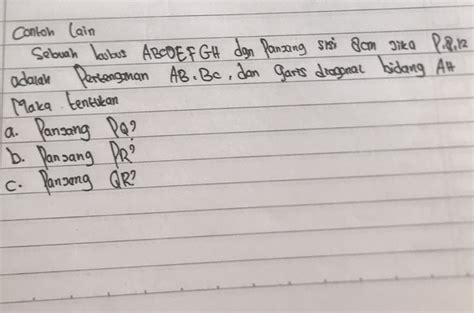 Contoh lain
Sebuah kubus ABCDEFGH dgn Panjang sisi 8cm Jika P,Q,R
adalah Pertengahan AB, BC, dan garis diagonal bidang AH
Maka tentukan
a. Panjang PQ?
b. Panjang PR?
c. Panjang QR?